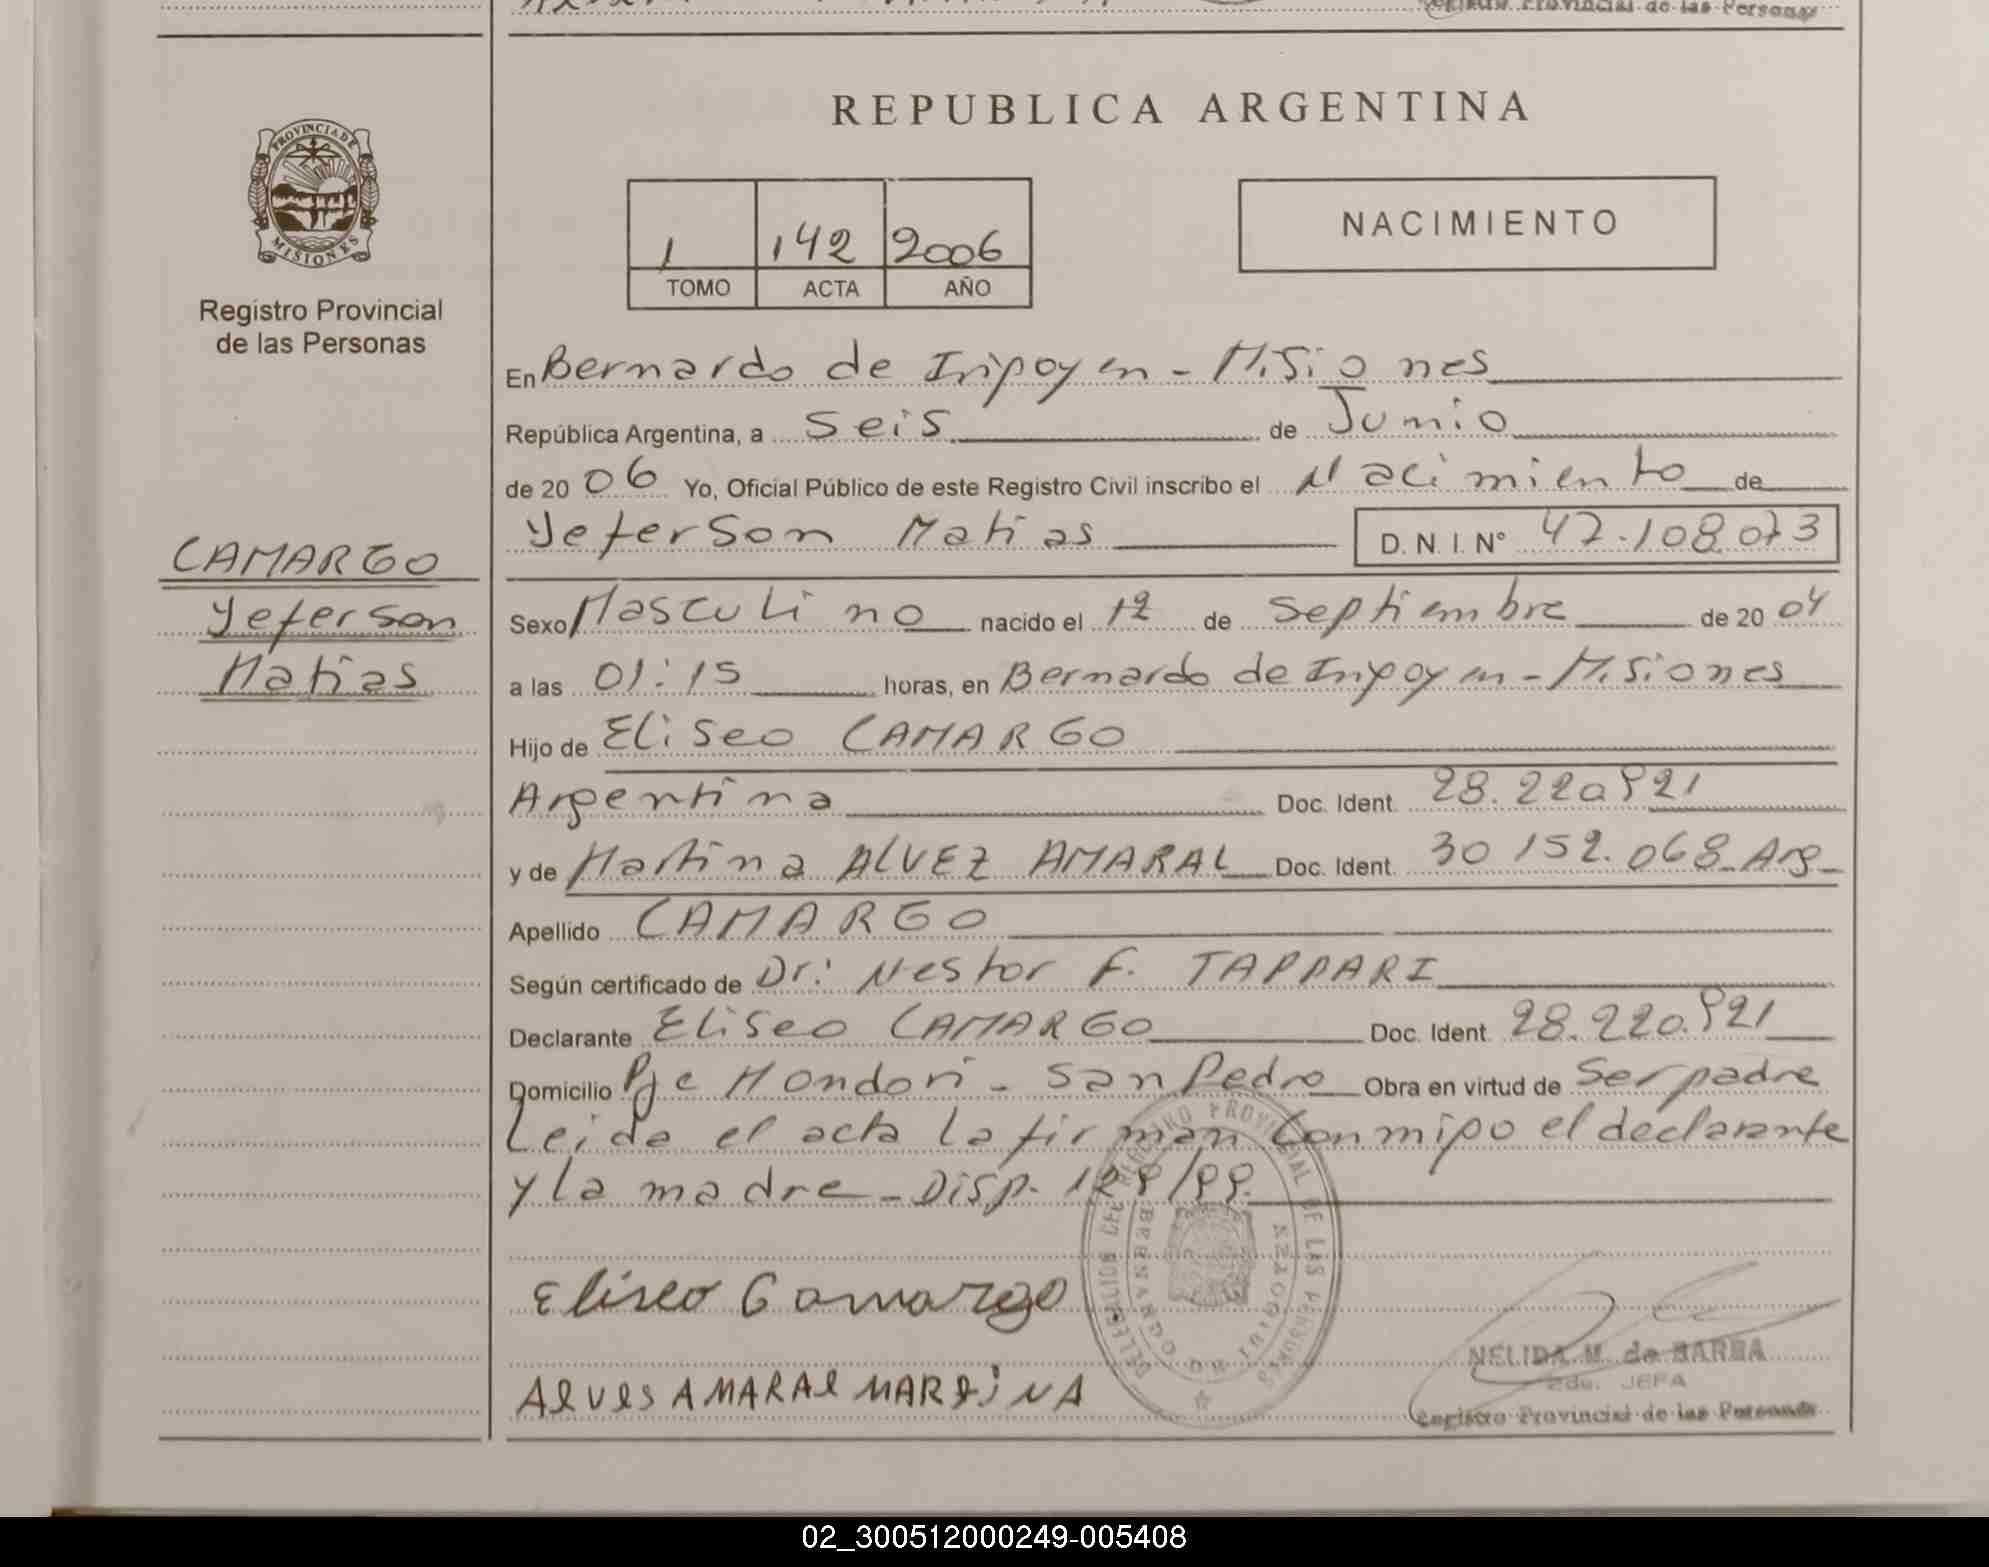 Registro Provincial de las Personas
REPUBLICA ARGENTINA
PROVINCIA DE
MISIONES
Registro Provincial
de las Personas
1 142 2006
TOMO ACTA AÑO
NACIMIENTO
En Bernardo de Irigoyen - Misiones
República Argentina, a Seis de Junio
de 20 06 Yo, Oficial Público de este Registro Civil inscribo el Nacimiento de
Yeferson Matias D. N. I. N° 47.108.073
CAMARGO
Yeferson
Matias
Sexo Masculino nacido el 12 de Septiembre de 20 04
a las 01:15 horas, en Bernardo de Irigoyen - Misiones
Hijo de Eliseo CAMARGO
Argentina Doc. Ident. 28.220.921
y de Martina ALVEZ AMARAL Doc. Ident. 30 152.068 Arg
Apellido CAMARGO
Según certificado de Dr: Nestor F. TAPPARI
Declarante Eliseo CAMARGO Doc. Ident. 28.220.921
Domicilio Pje Mondori - San Pedro Obra en virtud de Ser padre
Leida el acta la firman conmigo el declarante
y la madre - Disp. 129/99.
DELEGACION DEL REGISTRO PROVINCIAL DE LAS PERSONAS
BERNARDO DE IRIGOYEN
Eliseo Camargo
Alves AMARAl MARtiNA
NELIDA M. de BARBA
2da. JEFA
Registro Provincial de las Personas
02_300512000249-005408